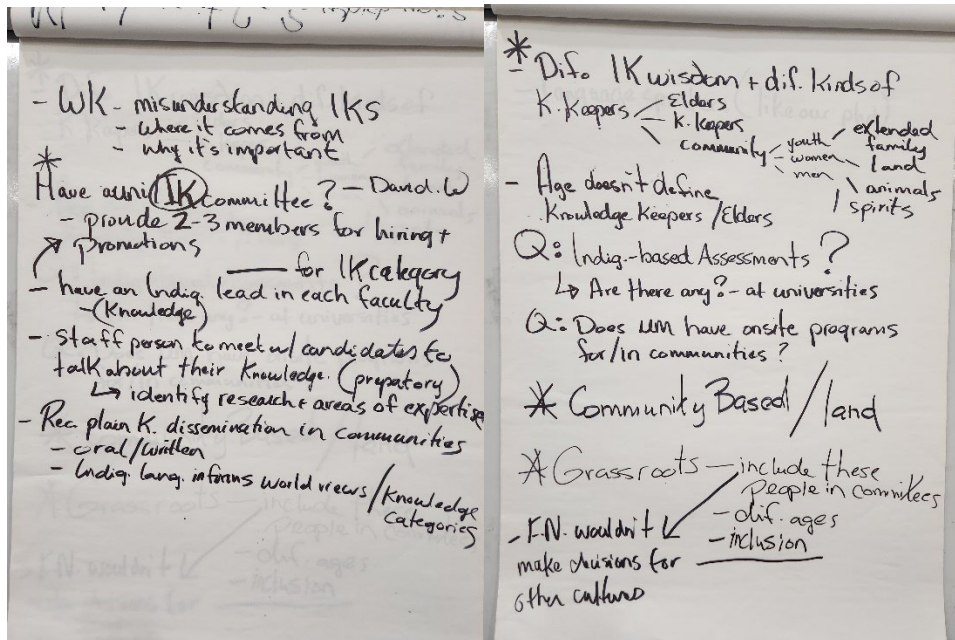 - WK - misunderstanding IKS
- Where it comes from
- Why it's important
* Have a uni IK committee? - David. W
- provide 2-3 members for hiring +
promotions
for IK category
- have an Indig. lead in each faculty
- (Knowledge)
- Staff person to meet w/ candidates to
talk about their Knowledge. (prepatory)
↳ identify research + areas of expertise
- Rec. plain K. dissemination in communities
- oral/written
- Indig. lang. informs world views / Knowledge
categories
*
- Dif. IK wisdom + dif. kinds of
K. Keepers - Elders
K. Keepers
community - youth
women
men
extended
family
land
animals
spirits
- Age doesn't define
Knowledge Keepers / Elders
Q: Indig.-based Assessments?
↳ Are there any? - at universities
Q: Does UM have onsite programs
for/in communities?
* Community Based / land
* Grassroots - include these
people in committees
- dif. ages
- inclusion
- F.N. wouldn't
make decisions for
other cultures